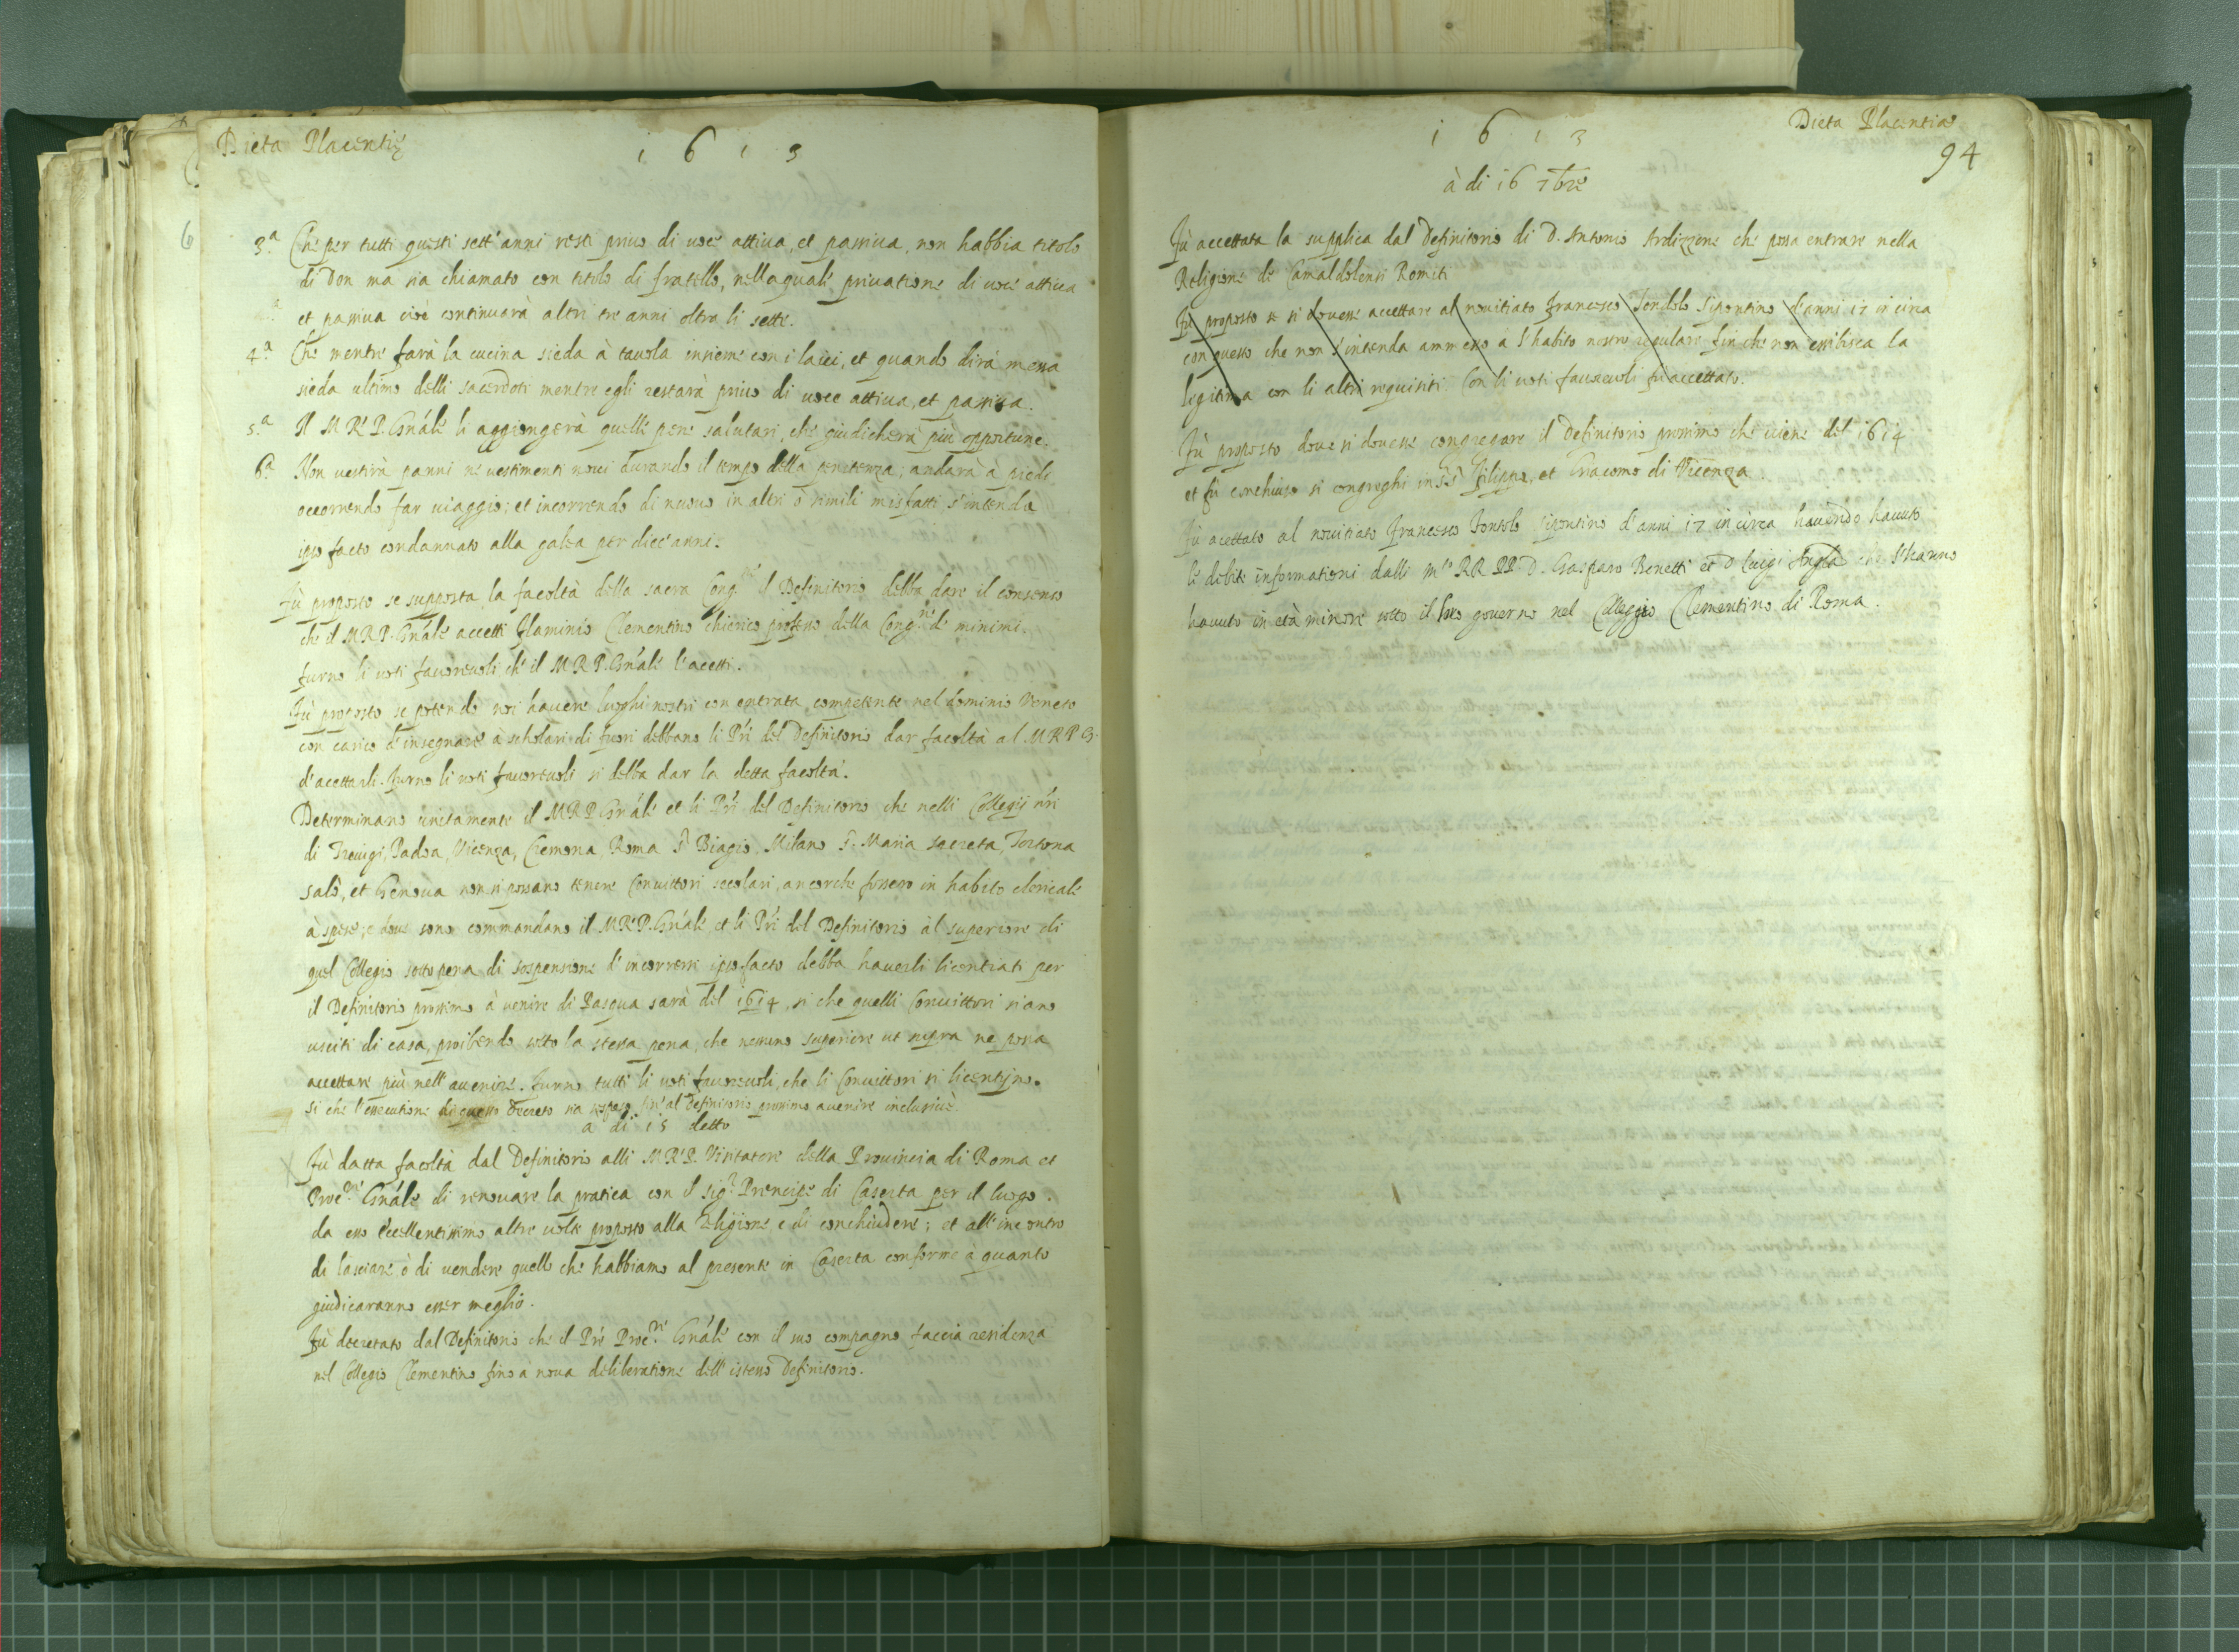 Dieta Placentię
1613
3.a Che per tutti questi sett'anni resti priuo di uoce attiua, et passiua, non habbia titolo
di Don ma sia chiamato con titolo di fratello, nella quale priuatione di uoce attiua
et passiua cioè continuarà altri tre anni oltra li sette.
4.a Che mentre farà la cucina sieda à tauola insieme con i laici, et quando dirà messa
sieda ultimo delli sacerdoti mentre egli restarà priuo di uoce attiua, et passiua.
5.a Il M R.P. Gnále li aggiongerà quelle pene salutari, che giudicherà più opportune.
6.a Non uestirà panni ne uestimenti noui durando il tempo della penitenza; andarà à piedi
occorrendo far uiaggio; et incorrendo di nuouo in altri ò simili misfatti s'intenda
ipso facto condannato alla galea per diec'anni.
Fù proposto se supposta la facoltà della sacra Cong.ne il Definitorio debba dare il consenso
che il M.R.P. Gnále accetti Flaminio Clementino chierico professo della Cong.ne de minimi.
furno li uoti fauoreuoli ch'il M.R.P. Gnále l'acetti.
Fù proposto se potendo noi hauere luoghi nostri con entrata competente nel dominio Veneto
con carico d'insegnare à scholari di fuori debbano li Pri del Definitorio dar facoltà al M.R.P.G.
d'accettarli. Furno li uoti fauoreuoli si debba dar la detta facoltà.
Determinano unitamente il M.R.P. Gnále et li Pri del Definitorio che nelli Collegij nri
di Treuigi, Padoa, Vicenza, Cremona, Roma S. Biagio, Milano S. Maria secreta, Tortona
Salò, et Genoua non si possano tenere Conuittori secolari, ancorche fossero in habito clericale
à spese; e doue sono commandano il M.R.P. Gnále et li Pri del Definitorio al superiore di
quel Collegio sotto pena di sospensione d'incorrere ipso facto debba hauerli licentiati per
il Definitorio prossimo à venire di Pasqua sarà del 1614, si che quelli Conuittori siano
usciti di casa, proibendo sotto la stessa pena, che nessuno superiore ut supra ne possa
accettare più nell'auenire. Furno tutti li uoti fauoreuoli, che li Conuittori si licentijno.
si che l'essecutione di questo decreto sia sospeso sin'al Definitorio prossimo auenire inclusiuè.
a di 15 detto
Fù datta facoltà dal Definitorio alli M.R.P. Visitatore della Prouincia di Roma et
Proc.re Gnále di renouare la pratica con il sig.r Prencipe di Caserta per il luogo.
da esso Eccellentissimo altre uolte proposto alla Religione e di conchiudere; et all'incontro
di lasciare ò di vendere quello che habbiamo al presente in Caserta conforme à quanto
giudicaranno esser meglio.
Fù decretato dal Definitorio che il Pre Proc.re Gnále con il suo compagno faccia residenza
nel Collegio Clementino fino a noua deliberatione dell'istesso Definitorio.
1613
Dieta Placentiae
94
à di 16 7bre
Fù accettata la supplica dal Definitorio di D. Antonio Ardizzone che possa entrare nella
Religione de Camaldolensi Romiti
Fù proposto se si douesse accettare al nouitiato Francesco Tondolo Sipontino d'anni 17 in circa
con questo che non s'intenda ammesso a l'habito nostro regulare fin che non essibisca la
legitima con li altri requisiti. Con li uoti fauoreuoli fù accettato.
Fù proposto doue si douesse congregare il Definitorio prossimo che uiene del 1614
et fù conchiuso si congreghi in SS. Filippo, et Giacomo di Vicenza.
Fù acettato al nouitiato Francesco Tontolo Sipontino d'anni 17 in circa hauendo hauuto
le debite informationi dalli m.to RR PP. D. Gasparo Benetti et D. Luigi che l'hanno
hauuto in età minore sotto il suo gouerno nel Collegio Clementino di Roma.